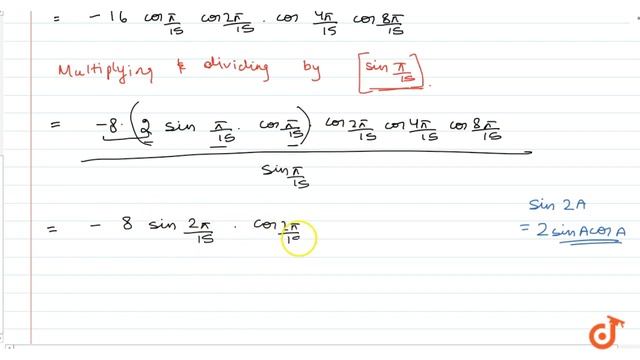 = -16 cos π/15 cos 2π/15 . cos 4π/15 cos 8π/15
Multiplying & dividing by [sin π/15].
= -8. (2 sin π/15 . cos π/15) cos 2π/15 cos 4π/15 cos 8π/15
sin π/15
= - 8 sin 2π/15 . cos 2π/1
sin 2A
= 2 sinA cosA